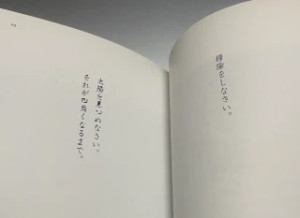 をしなさい。
太陽を見つめなさい。
それが四角くなるまで。